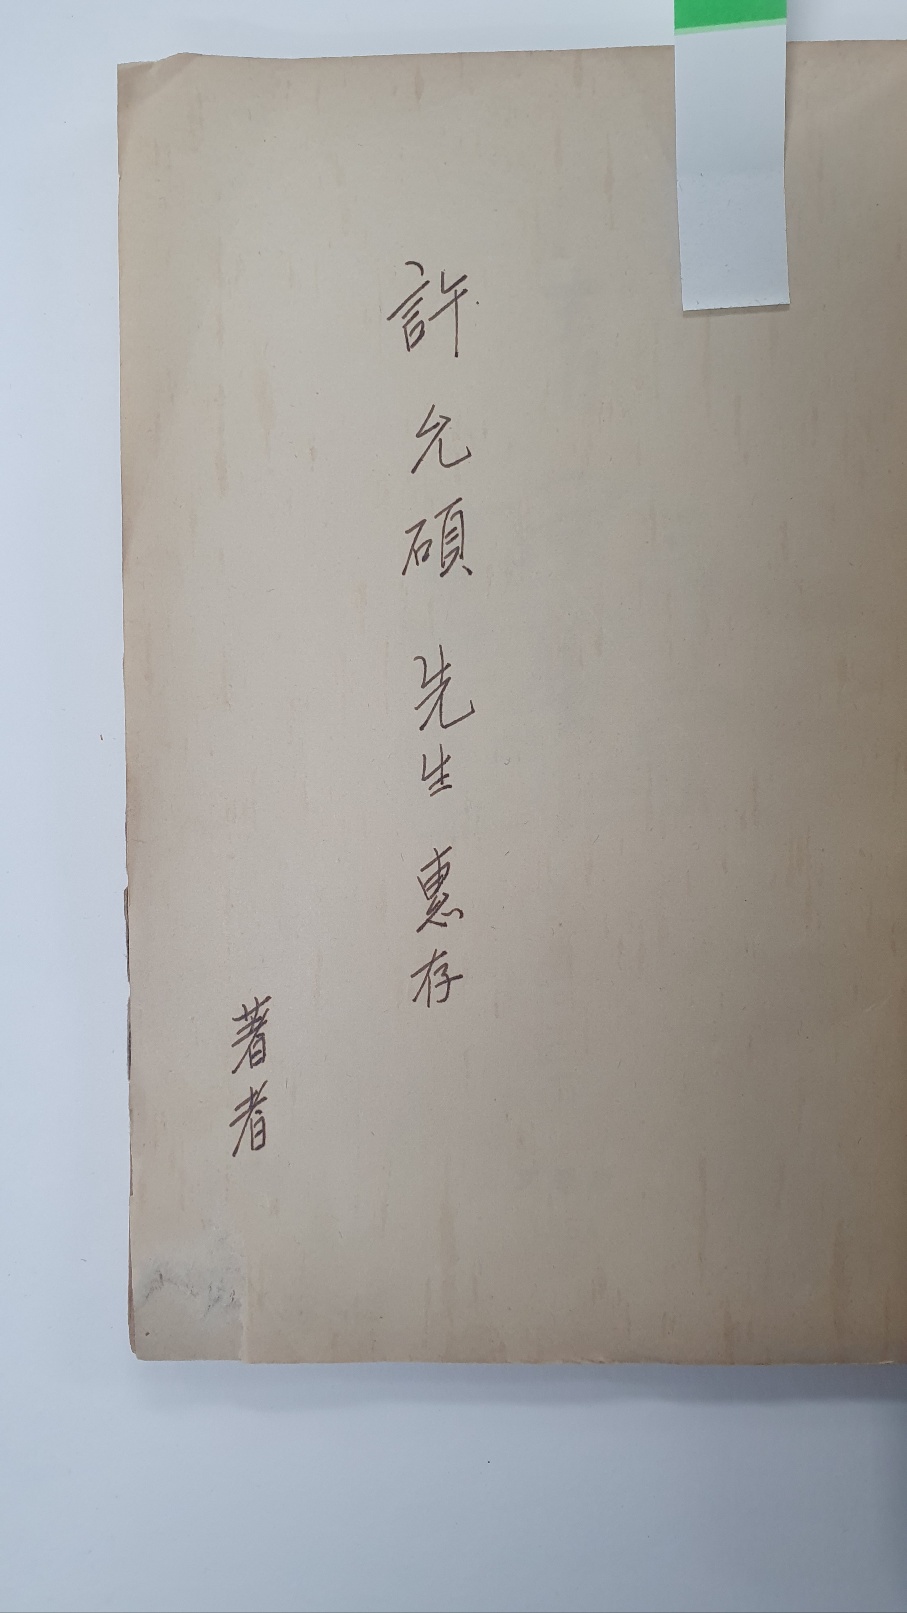 許允碩 先生 惠存
著者